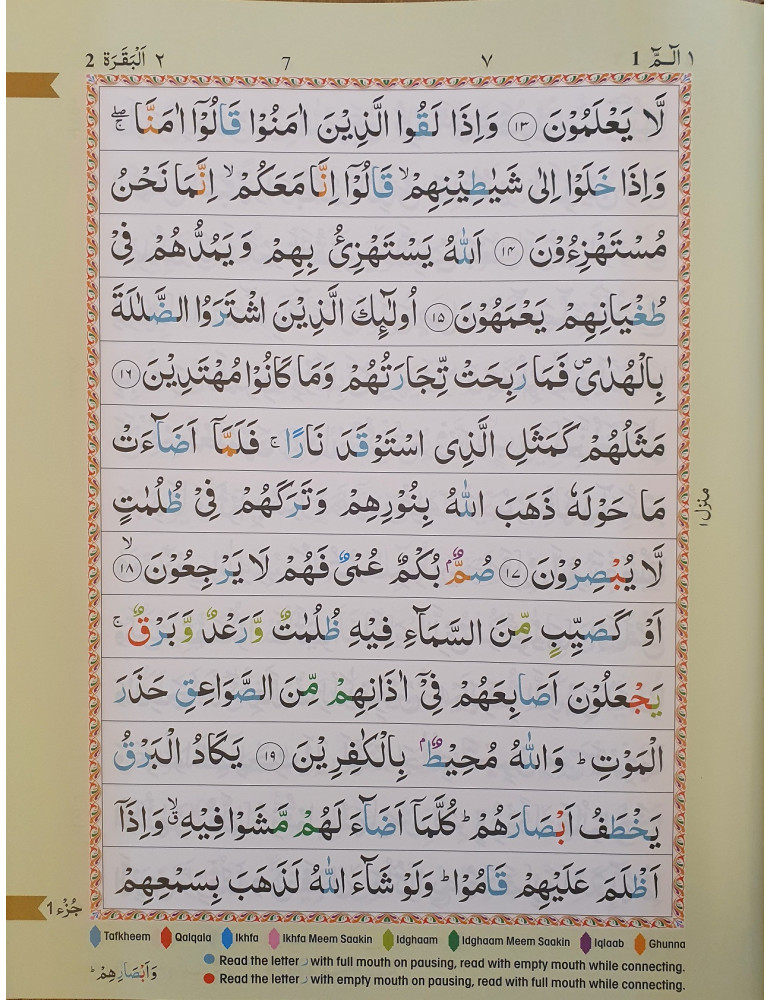 ١ الٓـمّٓ 1 ٧ 7 ٢ اَلْبَقَرَة 2
لَّا يَعْلَمُوْنَ ۝١٣ وَاِذَا لَقُوا الَّذِيْنَ اٰمَنُوْا قَالُوْٓا اٰمَنَّا ۚۖ
وَاِذَا خَلَوْا اِلٰى شَيٰطِيْنِهِمْ ۙ قَالُوْٓا اِنَّا مَعَكُمْ ۙ اِنَّمَا نَحْنُ
مُسْتَهْزِءُوْنَ ۝١٤ اَللّٰهُ يَسْتَهْزِئُ بِهِمْ وَيَمُدُّهُمْ فِيْ
طُغْيَانِهِمْ يَعْمَهُوْنَ ۝١٥ اُولٰٓئِكَ الَّذِيْنَ اشْتَرَوُا الضَّلٰلَةَ
بِالْهُدٰى ۪ فَمَا رَبِحَتْ تِّجَارَتُهُمْ وَمَا كَانُوْا مُهْتَدِيْنَ ۝١٦
مَثَلُهُمْ كَمَثَلِ الَّذِى اسْتَوْقَدَ نَارًا ۚ فَلَمَّآ اَضَآءَتْ
مَا حَوْلَهٗ ذَهَبَ اللّٰهُ بِنُوْرِهِمْ وَتَرَكَهُمْ فِيْ ظُلُمٰتٍ
لَّا يُبْصِرُوْنَ ۝١٧ صُمٌّۢ بُكْمٌ عُمْىٌ فَهُمْ لَا يَرْجِعُوْنَ ۙ۝١٨
اَوْ كَصَيِّبٍ مِّنَ السَّمَآءِ فِيْهِ ظُلُمٰتٌ وَّرَعْدٌ وَّبَرْقٌ ۚ
يَجْعَلُوْنَ اَصَابِعَهُمْ فِيْٓ اٰذَانِهِمْ مِّنَ الصَّوَاعِقِ حَذَرَ
الْمَوْتِ ؕ وَاللّٰهُ مُحِيْطٌۢ بِالْكٰفِرِيْنَ ۝١٩ يَكَادُ الْبَرْقُ
يَخْطَفُ اَبْصَارَهُمْ ؕ كُلَّمَآ اَضَآءَ لَهُمْ مَّشَوْا فِيْهِ ۙۗ وَاِذَآ
اَظْلَمَ عَلَيْهِمْ قَامُوْا ؕ وَلَوْ شَآءَ اللّٰهُ لَذَهَبَ بِسَمْعِهِمْ
منزل ١
جُزْء 1
Tafkheem Qalqala Ikhfa Ikhfa Meem Saakin Idghaam Idghaam Meem Saakin Iqlaab Ghunna
Read the letter ر with full mouth on pausing, read with empty mouth while connecting.
Read the letter ر with empty mouth on pausing, read with full mouth while connecting.
وَاَبْصَارِهِمْ ؕ